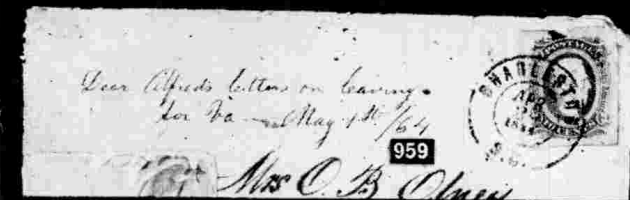 Dear Alfred's letters on leaving
for Va - May 1st /64
CHARLESTON
APR
959
Mrs O. B. Olney